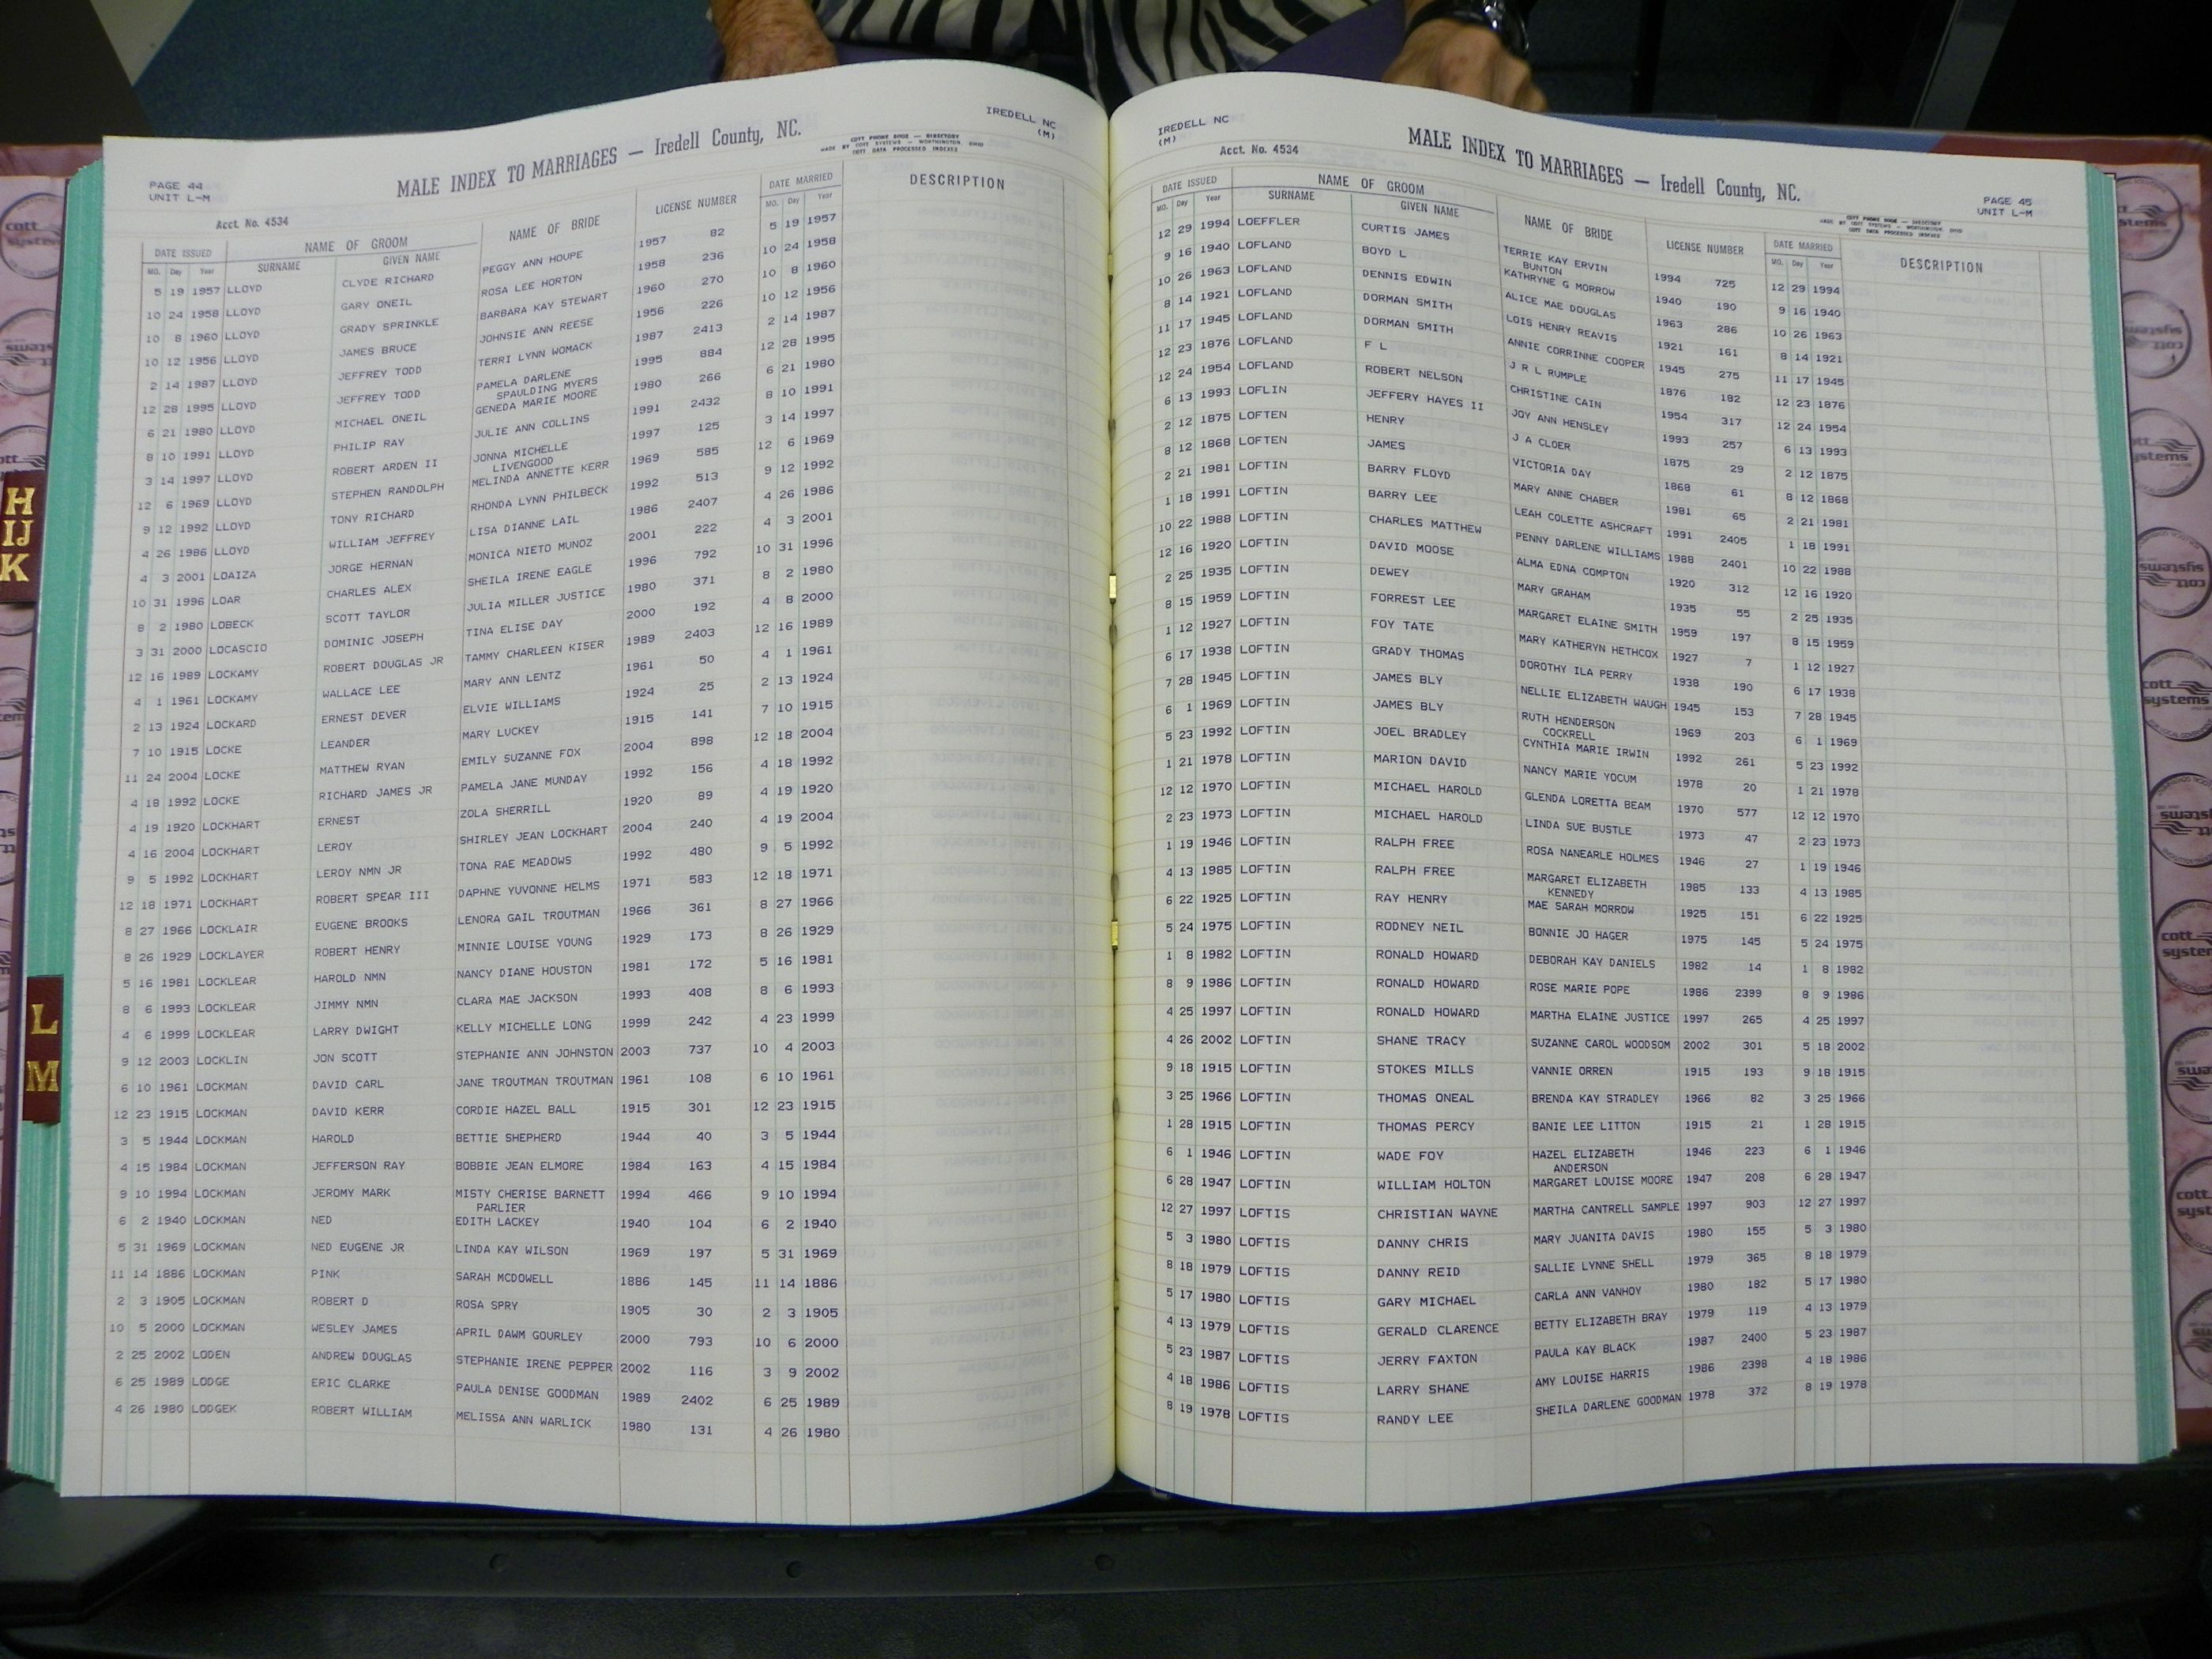 PAGE 44
UNIT L-M
MALE INDEX TO MARRIAGES — Iredell County, NC.
COTT PHONE BOOK — DIRECTORY
MADE BY COTT SYSTEMS — WORTHINGTON, OHIO
COTT DATA PROCESSED INDEXES
IREDELL NC
(M)
Acct. No. 4534
DATE ISSUED NAME OF GROOM NAME OF BRIDE LICENSE NUMBER DATE MARRIED DESCRIPTION
MO. Day Year SURNAME GIVEN NAME MO. Day Year
5 19 1957 LLOYD CLYDE RICHARD PEGGY ANN HOUPE 1957 82 5 19 1957
10 24 1958 LLOYD GARY ONEIL ROSA LEE HORTON 1958 236 10 24 1958
10 8 1960 LLOYD GRADY SPRINKLE BARBARA KAY STEWART 1960 270 10 8 1960
10 12 1956 LLOYD JAMES BRUCE JOHNSIE ANN REESE 1956 226 10 12 1956
2 14 1987 LLOYD JEFFREY TODD TERRI LYNN WOMACK 1987 2413 2 14 1987
12 28 1995 LLOYD JEFFREY TODD PAMELA DARLENE 1995 884 12 28 1995
SPAULDING MYERS
6 21 1980 LLOYD MICHAEL ONEIL GENEDA MARIE MOORE 1980 266 6 21 1980
8 10 1991 LLOYD PHILIP RAY JULIE ANN COLLINS 1991 2432 8 10 1991
3 14 1997 LLOYD ROBERT ARDEN II JONNA MICHELLE 1997 125 3 14 1997
LIVENGOOD
12 6 1969 LLOYD STEPHEN RANDOLPH MELINDA ANNETTE KERR 1969 585 12 6 1969
9 12 1992 LLOYD TONY RICHARD RHONDA LYNN PHILBECK 1992 513 9 12 1992
4 26 1986 LLOYD WILLIAM JEFFREY LISA DIANNE LAIL 1986 2407 4 26 1986
4 3 2001 LOAIZA JORGE HERNAN MONICA NIETO MUNOZ 2001 222 4 3 2001
10 31 1996 LOAR CHARLES ALEX SHEILA IRENE EAGLE 1996 792 10 31 1996
8 2 1980 LOBECK SCOTT TAYLOR JULIA MILLER JUSTICE 1980 371 8 2 1980
3 31 2000 LOCASCIO DOMINIC JOSEPH TINA ELISE DAY 2000 192 4 8 2000
12 16 1989 LOCKAMY ROBERT DOUGLAS JR TAMMY CHARLEEN KISER 1989 2403 12 16 1989
4 1 1961 LOCKAMY WALLACE LEE MARY ANN LENTZ 1961 50 4 1 1961
2 13 1924 LOCKARD ERNEST DEVER ELVIE WILLIAMS 1924 25 2 13 1924
7 10 1915 LOCKE LEANDER MARY LUCKEY 1915 141 7 10 1915
11 24 2004 LOCKE MATTHEW RYAN EMILY SUZANNE FOX 2004 898 12 18 2004
4 18 1992 LOCKE RICHARD JAMES JR PAMELA JANE MUNDAY 1992 156 4 18 1992
4 19 1920 LOCKHART ERNEST ZOLA SHERRILL 1920 89 4 19 1920
4 16 2004 LOCKHART LEROY SHIRLEY JEAN LOCKHART 2004 240 4 19 2004
9 5 1992 LOCKHART LEROY NMN JR TONA RAE MEADOWS 1992 480 9 5 1992
12 18 1971 LOCKHART ROBERT SPEAR III DAPHNE YUVONNE HELMS 1971 583 12 18 1971
8 27 1966 LOCKLAIR EUGENE BROOKS LENORA GAIL TROUTMAN 1966 361 8 27 1966
8 26 1929 LOCKLAYER ROBERT HENRY MINNIE LOUISE YOUNG 1929 173 8 26 1929
5 16 1981 LOCKLEAR HAROLD NMN NANCY DIANE HOUSTON 1981 172 5 16 1981
8 6 1993 LOCKLEAR JIMMY NMN CLARA MAE JACKSON 1993 408 8 6 1993
4 6 1999 LOCKLEAR LARRY DWIGHT KELLY MICHELLE LONG 1999 242 4 23 1999
9 12 2003 LOCKLIN JON SCOTT STEPHANIE ANN JOHNSTON 2003 737 10 4 2003
6 10 1961 LOCKMAN DAVID CARL JANE TROUTMAN TROUTMAN 1961 108 6 10 1961
12 23 1915 LOCKMAN DAVID KERR CORDIE HAZEL BALL 1915 301 12 23 1915
3 5 1944 LOCKMAN HAROLD BETTIE SHEPHERD 1944 40 3 5 1944
4 15 1984 LOCKMAN JEFFERSON RAY BOBBIE JEAN ELMORE 1984 163 4 15 1984
9 10 1994 LOCKMAN JEROMY MARK MISTY CHERISE BARNETT 1994 466 9 10 1994
PARLIER
6 2 1940 LOCKMAN NED EDITH LACKEY 1940 104 6 2 1940
5 31 1969 LOCKMAN NED EUGENE JR LINDA KAY WILSON 1969 197 5 31 1969
11 14 1886 LOCKMAN PINK SARAH MCDOWELL 1886 145 11 14 1886
2 3 1905 LOCKMAN ROBERT D ROSA SPRY 1905 30 2 3 1905
10 5 2000 LOCKMAN WESLEY JAMES APRIL DAWM GOURLEY 2000 793 10 6 2000
2 25 2002 LODEN ANDREW DOUGLAS STEPHANIE IRENE PEPPER 2002 116 3 9 2002
6 25 1989 LODGE ERIC CLARKE PAULA DENISE GOODMAN 1989 2402 6 25 1989
4 26 1980 LODGEK ROBERT WILLIAM MELISSA ANN WARLICK 1980 131 4 26 1980
IREDELL NC
(M)
Acct. No. 4534
MALE INDEX TO MARRIAGES — Iredell County, NC.
COTT PHONE BOOK — DIRECTORY
MADE BY COTT SYSTEMS — WORTHINGTON, OHIO
COTT DATA PROCESSED INDEXES
PAGE 45
UNIT L-M
DATE ISSUED NAME OF GROOM NAME OF BRIDE LICENSE NUMBER DATE MARRIED DESCRIPTION
MO. Day Year SURNAME GIVEN NAME MO. Day Year
12 29 1994 LOEFFLER CURTIS JAMES TERRIE KAY ERVIN 1994 725 12 29 1994
BUNTON
9 16 1940 LOFLAND BOYD L KATHRYNE G MORROW 1940 190 9 16 1940
10 26 1963 LOFLAND DENNIS EDWIN ALICE MAE DOUGLAS 1963 286 10 26 1963
8 14 1921 LOFLAND DORMAN SMITH LOIS HENRY REAVIS 1921 161 8 14 1921
11 17 1945 LOFLAND DORMAN SMITH ANNIE CORRINNE COOPER 1945 275 11 17 1945
12 23 1876 LOFLAND F L J R L RUMPLE 1876 182 12 23 1876
12 24 1954 LOFLAND ROBERT NELSON CHRISTINE CAIN 1954 317 12 24 1954
6 13 1993 LOFLIN JEFFERY HAYES II JOY ANN HENSLEY 1993 257 6 13 1993
2 12 1875 LOFTEN HENRY J A CLOER 1875 29 2 12 1875
8 12 1868 LOFTEN JAMES VICTORIA DAY 1868 61 8 12 1868
2 21 1981 LOFTIN BARRY FLOYD MARY ANNE CHABER 1981 65 2 21 1981
1 18 1991 LOFTIN BARRY LEE LEAH COLETTE ASHCRAFT 1991 2405 1 18 1991
10 22 1988 LOFTIN CHARLES MATTHEW PENNY DARLENE WILLIAMS 1988 2401 10 22 1988
12 16 1920 LOFTIN DAVID MOOSE ALMA EDNA COMPTON 1920 312 12 16 1920
2 25 1935 LOFTIN DEWEY MARY GRAHAM 1935 55 2 25 1935
8 15 1959 LOFTIN FORREST LEE MARGARET ELAINE SMITH 1959 197 8 15 1959
1 12 1927 LOFTIN FOY TATE MARY KATHERYN HETHCOX 1927 7 1 12 1927
6 17 1938 LOFTIN GRADY THOMAS DOROTHY ILA PERRY 1938 190 6 17 1938
7 28 1945 LOFTIN JAMES BLY NELLIE ELIZABETH WAUGH 1945 153 7 28 1945
6 1 1969 LOFTIN JAMES BLY RUTH HENDERSON 1969 203 6 1 1969
COCKRELL
5 23 1992 LOFTIN JOEL BRADLEY CYNTHIA MARIE IRWIN 1992 261 5 23 1992
1 21 1978 LOFTIN MARION DAVID NANCY MARIE YOCUM 1978 20 1 21 1978
12 12 1970 LOFTIN MICHAEL HAROLD GLENDA LORETTA BEAM 1970 577 12 12 1970
2 23 1973 LOFTIN MICHAEL HAROLD LINDA SUE BUSTLE 1973 47 2 23 1973
1 19 1946 LOFTIN RALPH FREE ROSA NANEARLE HOLMES 1946 27 1 19 1946
4 13 1985 LOFTIN RALPH FREE MARGARET ELIZABETH 1985 133 4 13 1985
KENNEDY
6 22 1925 LOFTIN RAY HENRY MAE SARAH MORROW 1925 151 6 22 1925
5 24 1975 LOFTIN RODNEY NEIL BONNIE JO HAGER 1975 145 5 24 1975
1 8 1982 LOFTIN RONALD HOWARD DEBORAH KAY DANIELS 1982 14 1 8 1982
8 9 1986 LOFTIN RONALD HOWARD ROSE MARIE POPE 1986 2399 8 9 1986
4 25 1997 LOFTIN RONALD HOWARD MARTHA ELAINE JUSTICE 1997 265 4 25 1997
4 26 2002 LOFTIN SHANE TRACY SUZANNE CAROL WOODSOM 2002 301 5 18 2002
9 18 1915 LOFTIN STOKES MILLS VANNIE ORREN 1915 193 9 18 1915
3 25 1966 LOFTIN THOMAS ONEAL BRENDA KAY STRADLEY 1966 82 3 25 1966
1 28 1915 LOFTIN THOMAS PERCY BANIE LEE LITTON 1915 21 1 28 1915
6 1 1946 LOFTIN WADE FOY HAZEL ELIZABETH 1946 223 6 1 1946
ANDERSON
6 28 1947 LOFTIN WILLIAM HOLTON MARGARET LOUISE MOORE 1947 208 6 28 1947
12 27 1997 LOFTIS CHRISTIAN WAYNE MARTHA CANTRELL SAMPLE 1997 903 12 27 1997
5 3 1980 LOFTIS DANNY CHRIS MARY JUANITA DAVIS 1980 155 5 3 1980
8 18 1979 LOFTIS DANNY REID SALLIE LYNNE SHELL 1979 365 8 18 1979
5 17 1980 LOFTIS GARY MICHAEL CARLA ANN VANHOY 1980 182 5 17 1980
4 13 1979 LOFTIS GERALD CLARENCE BETTY ELIZABETH BRAY 1979 119 4 13 1979
5 23 1987 LOFTIS JERRY FAXTON PAULA KAY BLACK 1987 2400 5 23 1987
4 18 1986 LOFTIS LARRY SHANE AMY LOUISE HARRIS 1986 2398 4 18 1986
8 19 1978 LOFTIS RANDY LEE SHEILA DARLENE GOODMAN 1978 372 8 19 1978
H
IJ
K
L
M
cott
systems